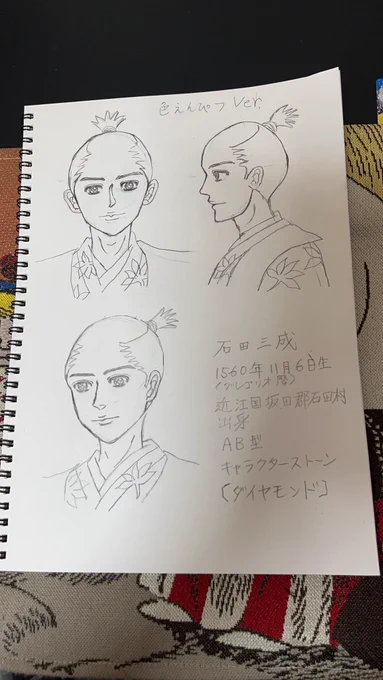 色えんぴつ Ver.
石田三成
1560年11月6日生
(グレゴリオ暦)
近江国坂田郡石田村
出身
AB型
キャラクターストーン
〔ダイヤモンド〕